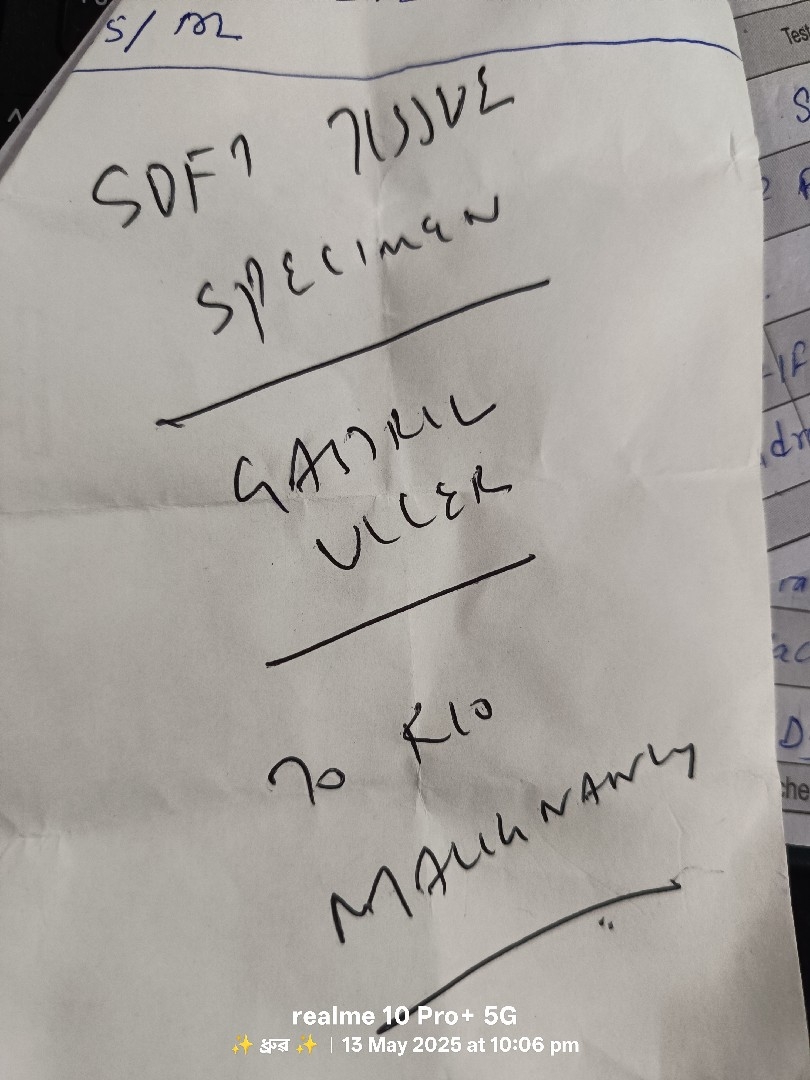 S/M
SOFT TISSUE
SPECIMEN
GASTRIC
ULCER
TO R/O
MALIGNANCY
Test
D
realme 10 Pro+ 5G
✨ ধ্রুব ✨ | 13 May 2025 at 10:06 pm